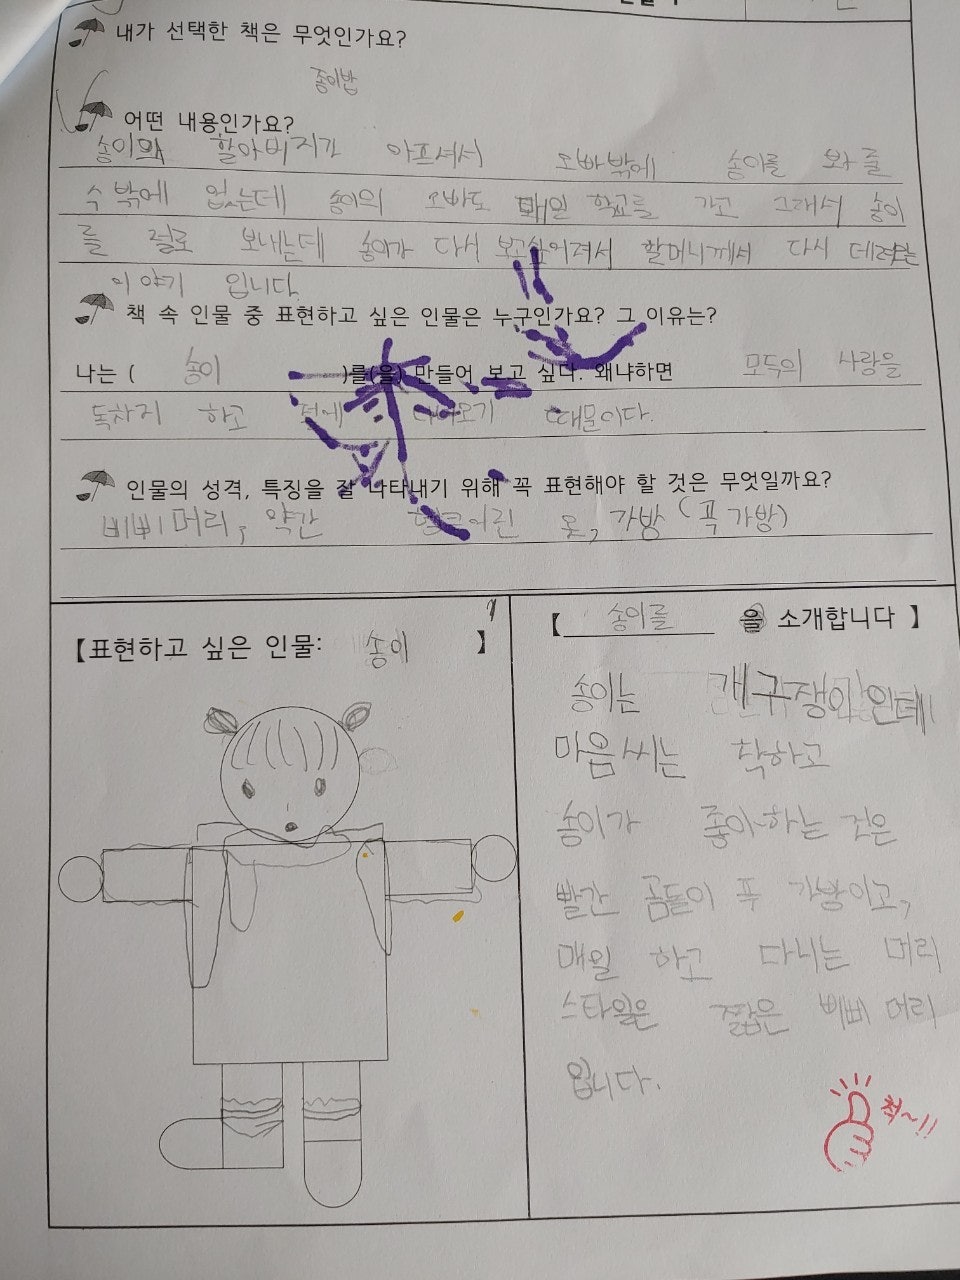 내가 선택한 책은 무엇인가요?
종이밥
어떤 내용인가요?
송이의 할아버지가 아프셔서 오빠밖에 송이를 봐줄
수 밖에 없는데 송이의 오빠도 매일 학교를 가고 그래서 송이
를 절로 보내는데 송이가 다시 보고싶어져서 할머니께서 다시 데려오는
이야기 입니다.
책 속 인물 중 표현하고 싶은 인물은 누구인가요? 그 이유는?
나는 ( 송이 )를(을) 만들어 보고 싶다. 왜냐하면 모두의 사랑을
독차지 하고 때문이다.
인물의 성격, 특징을 잘 나타내기 위해 꼭 표현해야 할 것은 무엇일까요?
삐삐머리, 약간 옷, 가방(푹 가방)
【표현하고 싶은 인물: 송이 】
【 송이를 을 소개합니다 】
송이는 개구쟁이인데
마음씨는 착하고
송이가 좋아하는 것은
빨간 곰돌이 푹 가방이고,
매일 하고 다니는 머리
스타일은 짧은 삐삐머리
입니다.
척~!!